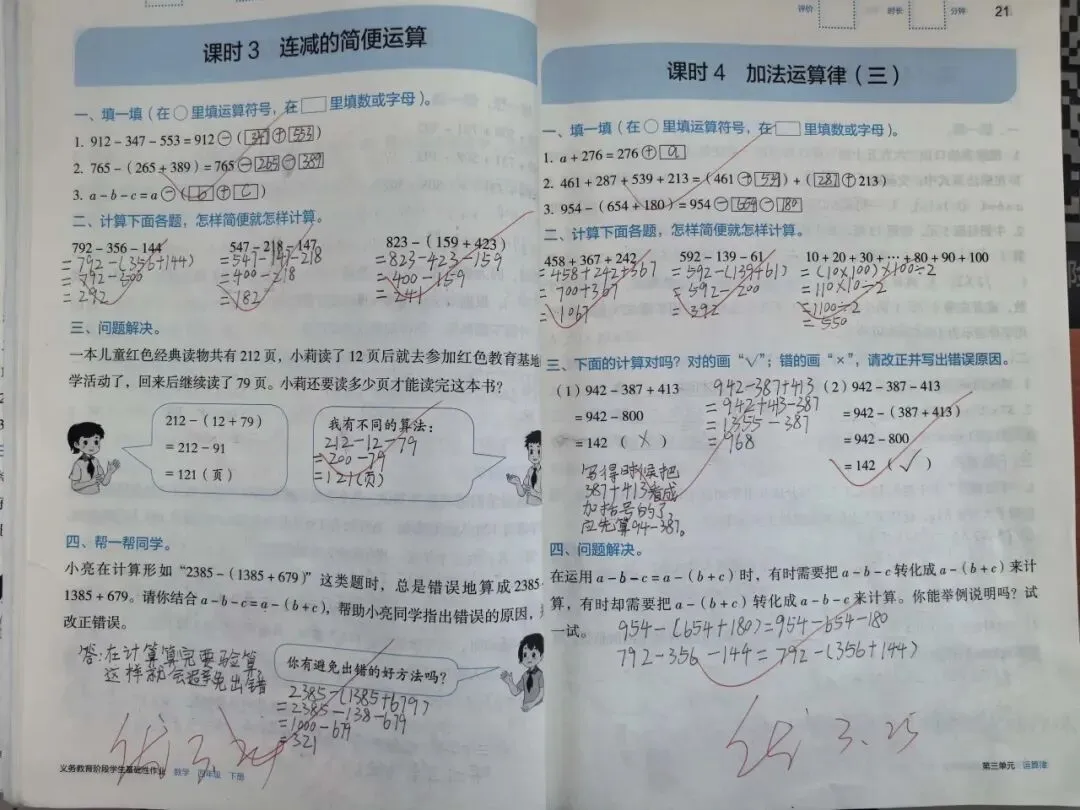 课时3 连减的简便运算
一、填一填(在○里填运算符号,在□里填数或字母)。
1. 912-347-553=912-(347+553)
2. 765-(265+389)=765-265-389
3. a-b-c=a-(b+c)
二、计算下面各题,怎样简便就怎样计算。
792-356-144 547-218-147 823-(159+423)
=792-(356+144) =547-147-218 =823-423-159
=792-500 =400-218 =400-159
=292 =182 =241
三、问题解决。
一本儿童红色经典读物共有212页,小莉读了12页后就去参加红色教育基地
学活动了,回来后继续读了79页。小莉还要读多少页才能读完这本书?
212-(12+79)
=212-91
=121(页)
我有不同的算法:
212-12-79
=200-79
=121(页)
四、帮一帮同学。
小亮在计算形如“2385-(1385+679)”这类题时,总是错误地算成2385-
1385+679。请你结合a-b-c=a-(b+c),帮助小亮同学指出错误的原因,
改正错误。
答:在计算完要验算
这样就会避免出错
你有避免出错的好方法吗?
2385-(1385+679)
=2385-138-679
=1000-679
=321
义务教育阶段学生基础性作业 数学 四年级 下册
评价 时长 分钟 21
课时4 加法运算律(三)
一、填一填(在○里填运算符号,在□里填数或字母)。
1. a+276=276+a
2. 461+287+539+213=(461+539)+(287+213)
3. 954-(654+180)=954-654-180
二、计算下面各题,怎样简便就怎样计算。
458+367+242 592-139-61 10+20+30+…+80+90+100
=458+242+367 =592-(139+61) =(10+100)×100÷2
=700+367 =592-200 =110×10÷2
=1067 =392 =1100÷2
=550
三、下面的计算对吗?对的画“√”;错的画“×”,请改正并写出错误原因。
(1)942-387+413 942-387+413 (2)942-387-413
=942-800 =942+413-387 =942-(387+413)
=142(×) =1355-387 =942-800
=968 =142(√)
写得时候把
387+413看成
加括号的了,
应先算94-387。
四、问题解决。
在运用a-b-c=a-(b+c)时,有时需要把a-b-c转化成a-(b+c)来计
算,有时却需要把a-(b+c)转化成a-b-c来计算。你能举例说明吗?试
一试。
954-(654+180)=954-654-180
792-356-144=792-(356+144)
3.25
第三单元 运算律